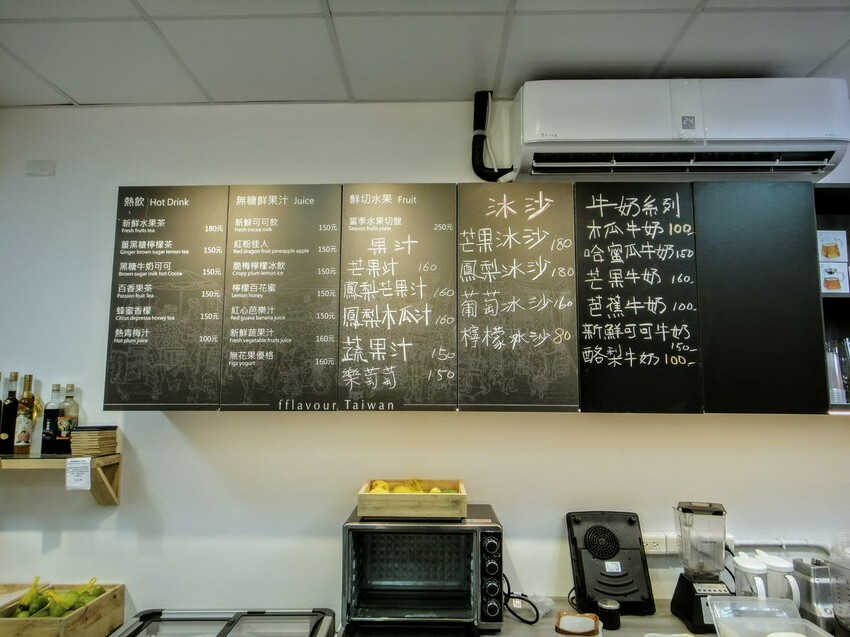 熱飲 Hot Drink
新鮮水果茶 180元
Fresh fruits tea
薑黑糖檸檬茶 150元
Ginger brown sugar lemon tea
黑糖牛奶可可 150元
Brown sugar milk hot Cocoa
百香果茶 150元
Passion fruit Tea
蜂蜜香檬 150元
Citrus depressa honey tea
熱青梅汁 100元
Hot plum juice
無糖鮮果汁 Juice
新鮮可可飲 150元
Fresh cocoa milk
紅粉佳人 150元
Red dragon fruit pineapple apple
脆梅檸檬冰飲 150元
Crispy plum lemon ice
檸檬百花蜜 150元
Lemon honey
紅心芭樂汁 150元
Red guava banana juice
新鮮蔬果汁 160元
Fresh vegetable fruits juice
無花果優格 160元
Figs yogurt
鮮切水果 Fruit
當季水果切盤 250元
Season fruits plate
果汁
芒果汁 160
鳳梨芒果汁 160
鳳梨木瓜汁 160
蔬果汁 150
樂萄萄 150
冰沙
芒果冰沙 180
鳳梨冰沙 180
葡萄冰沙 160
檸檬冰沙 80
牛奶系列
木瓜牛奶 100
哈蜜瓜牛奶 150
芒果牛奶 160-
芭蕉牛奶 100-
新鮮可可牛奶
150-
酪梨牛奶 100-
fflavour Taiwan
24